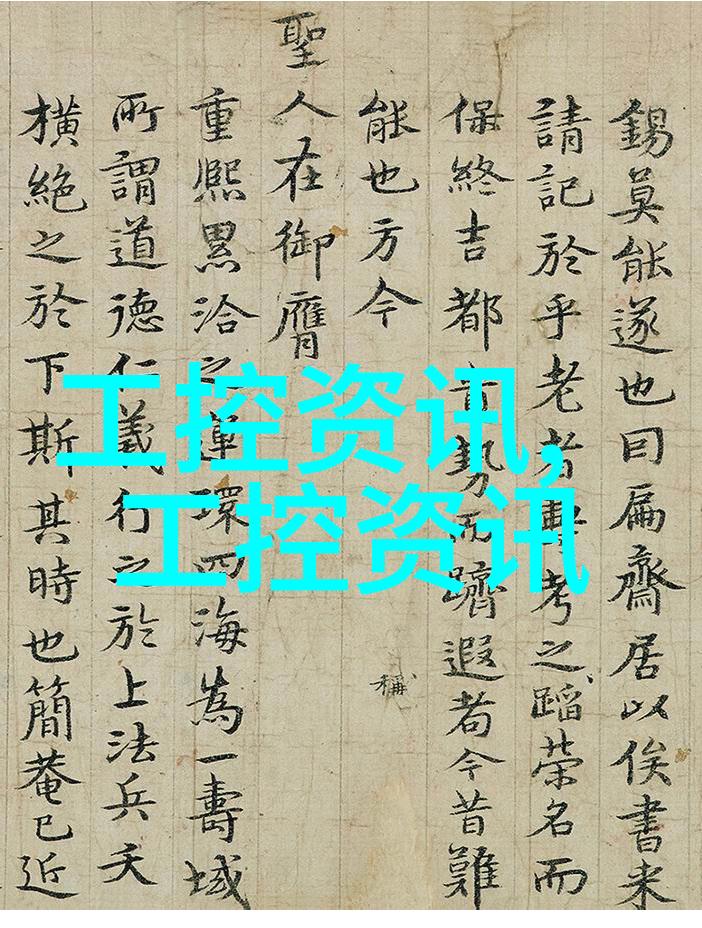 錫莫能遂也曰扁齋居以俟書来
請記於乎老者壽考之蹈榮名而
保終吉都貴勢而躋遐耇今昔難
能也方今
稱
聖人在御膺
重熙累洽之運環四海為一壽域
所謂道德仁義行之於上法兵夭
橫絕之於下斯其時也簡菴已近
工控资讯,
工控资讯